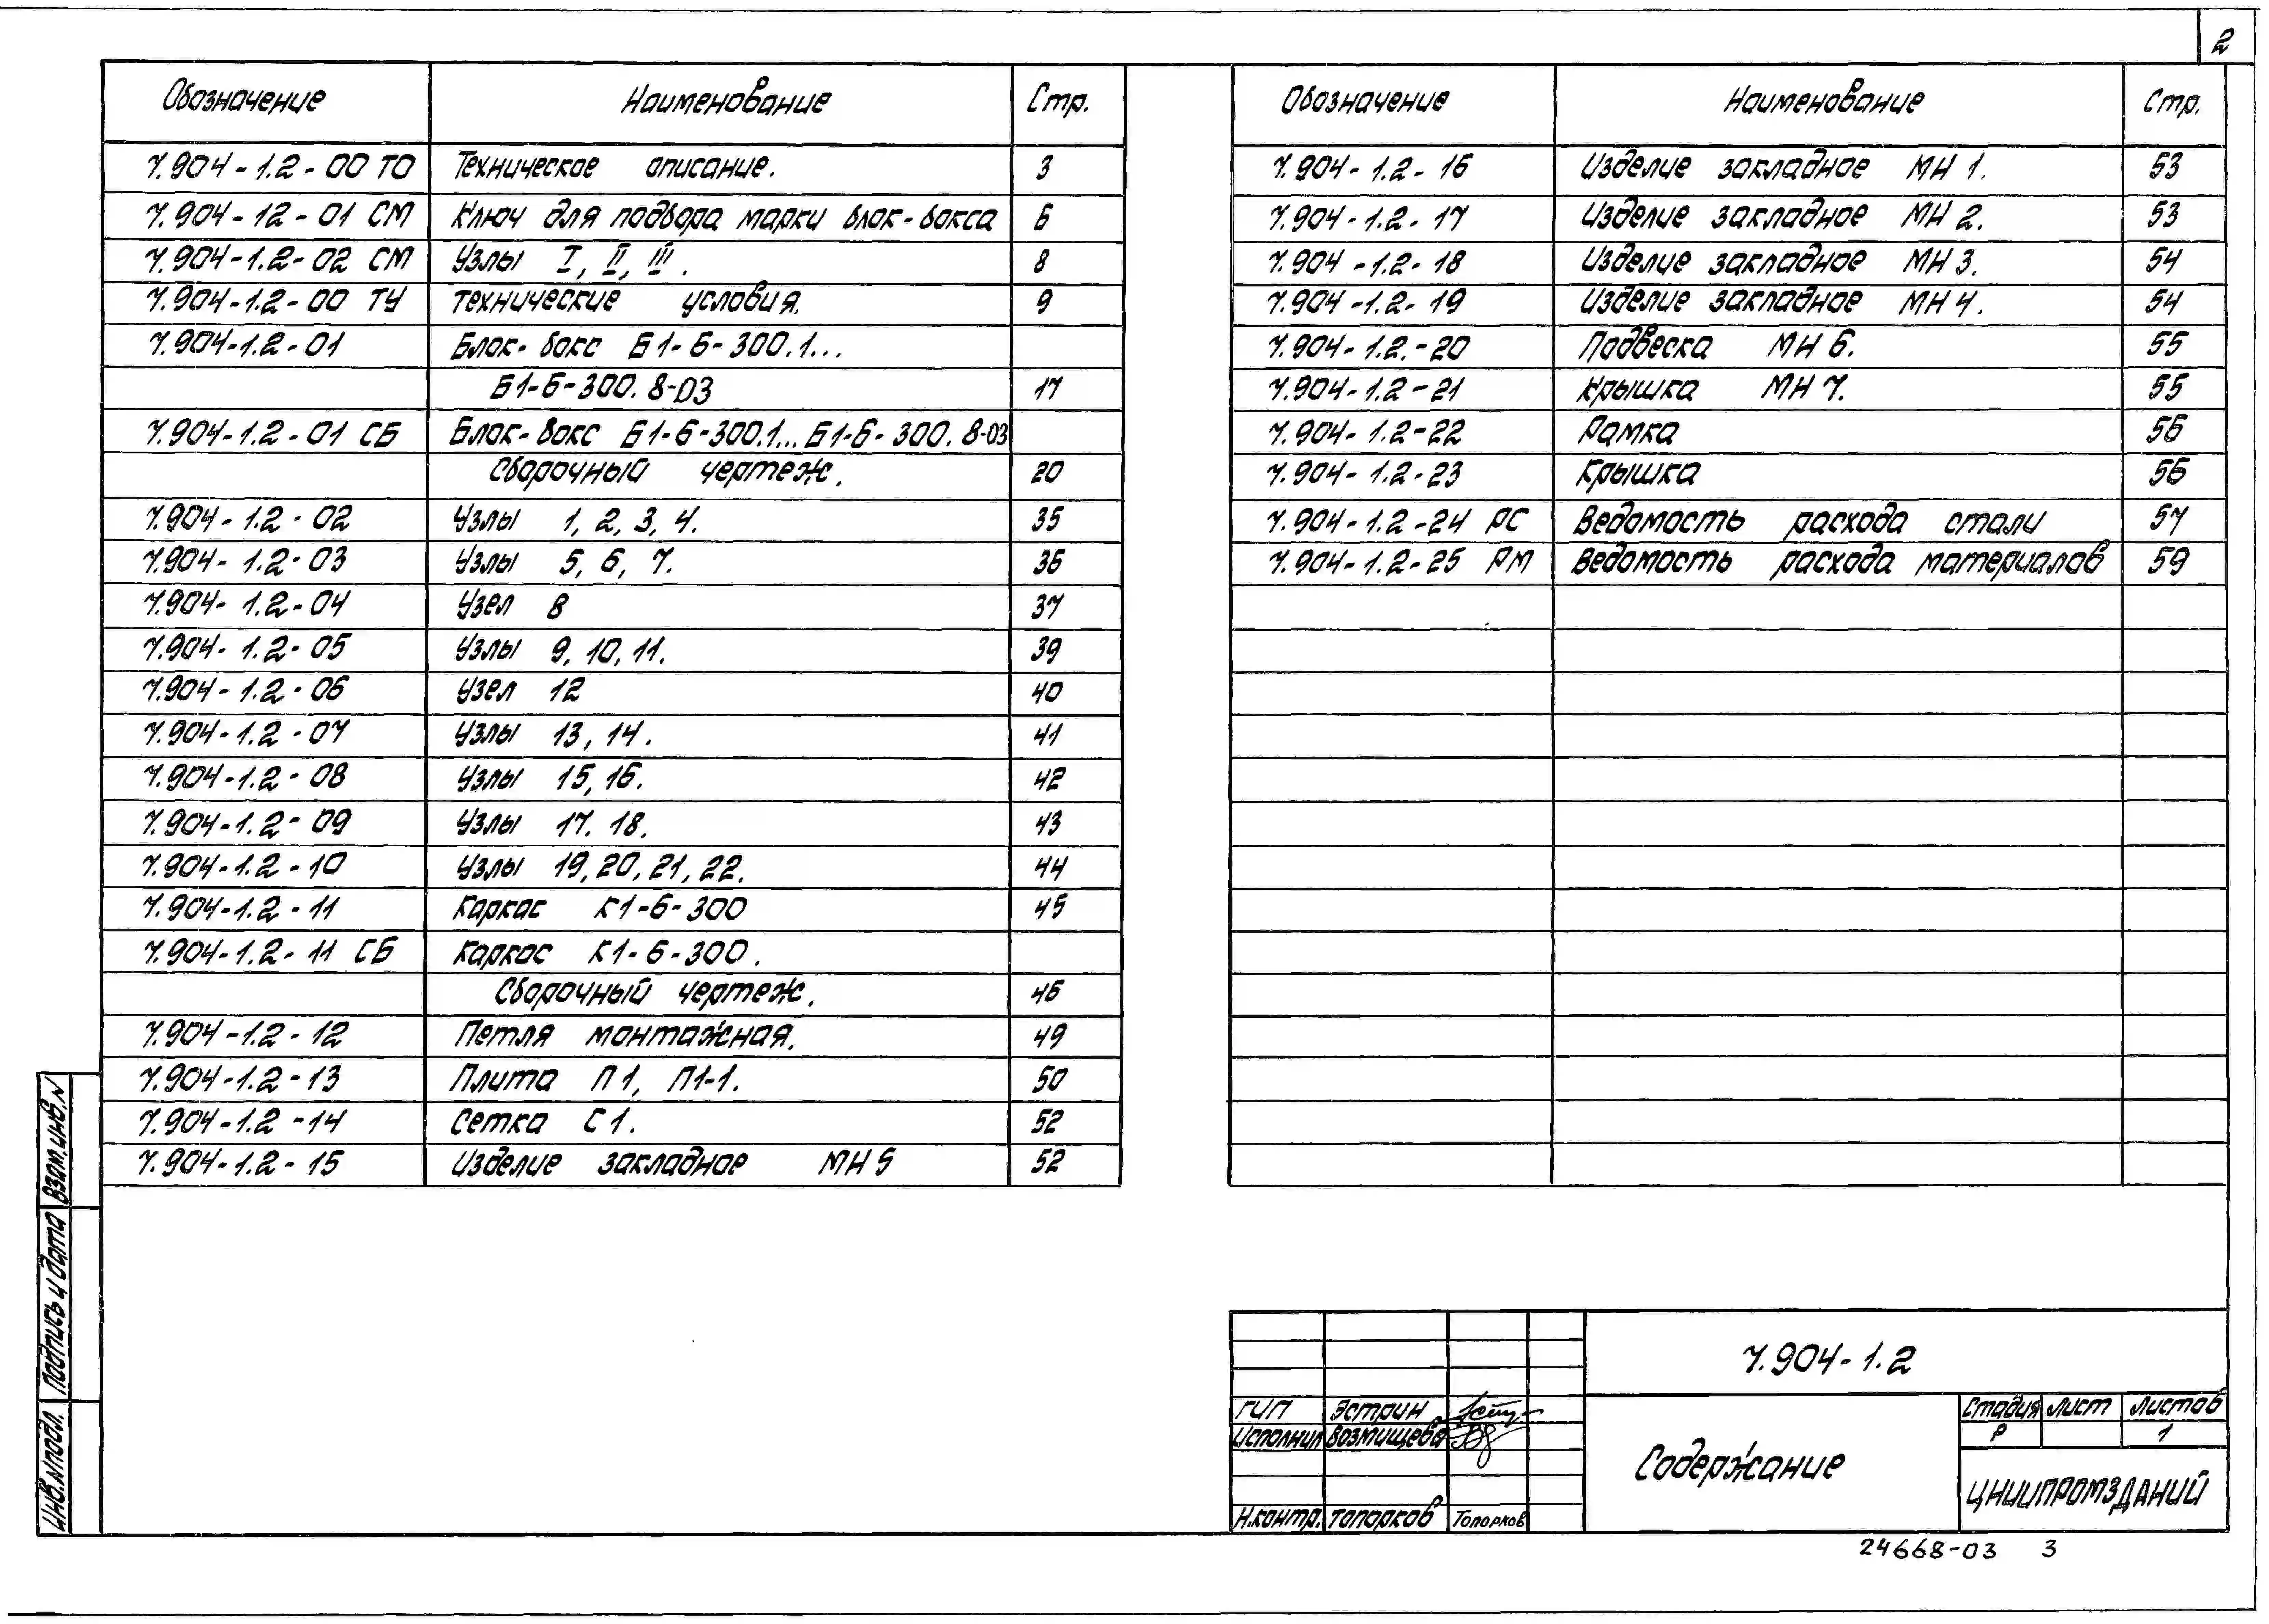 2
Обозначение Наименование Стр.
7.904-1.2-00 ТО Техническое описание. 3
7.904-12-01 СМ Ключ для подбора марки блок-бокса 6
7.904-1.2-02 СМ Узлы I, II, III. 8
7.904-1.2-00 ТУ Технические условия. 9
7.904-1.2-01 Блок-бокс Б1-6-300.1...
Б1-6-300.8-03 17
7.904-1.2-01 СБ Блок-бокс Б1-6-300.1...Б1-6-300.8-03
Сборочный чертеж. 20
7.904-1.2-02 Узлы 1, 2, 3, 4. 35
7.904-1.2-03 Узлы 5, 6, 7. 36
7.904-1.2-04 Узел 8 37
7.904-1.2-05 Узлы 9, 10, 11. 39
7.904-1.2-06 Узел 12 40
7.904-1.2-07 Узлы 13, 14. 41
7.904-1.2-08 Узлы 15, 16. 42
7.904-1.2-09 Узлы 17. 18. 43
7.904-1.2-10 Узлы 19, 20, 21, 22. 44
7.904-1.2-11 Каркас К1-6-300 45
7.904-1.2-11 СБ Каркас К1-6-300.
Сборочный чертеж. 46
7.904-1.2-12 Петля монтажная. 49
7.904-1.2-13 Плита П1, П1-1. 50
7.904-1.2-14 Сетка С1. 52
7.904-1.2-15 Изделие закладное МН5 52
Обозначение Наименование Стр.
7.904-1.2-16 Изделие закладное МН 1. 53
7.904-1.2-17 Изделие закладное МН 2. 53
7.904-1.2-18 Изделие закладное МН 3. 54
7.904-1.2-19 Изделие закладное МН 4. 54
7.904-1.2.-20 Подвеска МН 6. 55
7.904-1.2-21 Крышка МН 7. 55
7.904-1.2-22 Рамка 56
7.904-1.2-23 Крышка 56
7.904-1.2-24 РС Ведомость расхода стали 57
7.904-1.2-25 РМ Ведомость расхода материалов 59
Взам. инв. N
Подпись и дата
Инв. N подл.
7.904-1.2
ГИП Эстрин
Исполнил Возмищева
Н.контр. Топорков Топорков
Содержание
Стадия Лист Листов
Р 1
ЦНИИПРОМЗДАНИЙ
24668-03 3